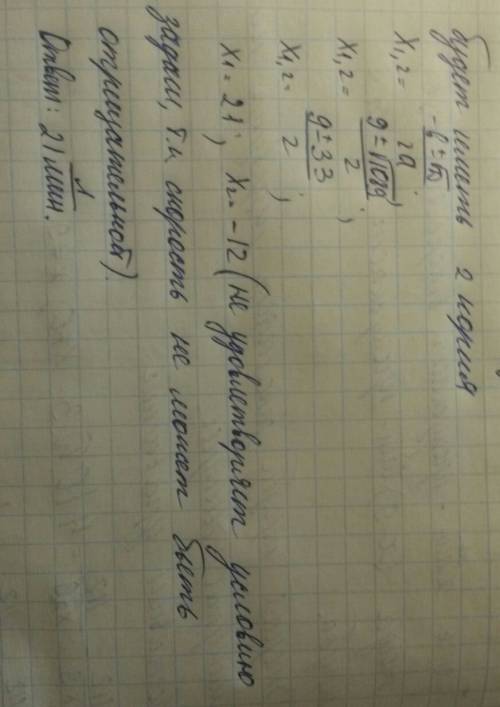 будет иметь 2 корня
x₁,₂ = (-b ± √D)/2a;
x₁,₂ = (9 ± √1089)/2;
x₁,₂ = (9 ± 33)/2;
x₁ = 21; x₂ = -12 (не удовлетворяет условию
задачи, т.к скорость не может быть
отрицательной).
Ответ: 21 л/мин.